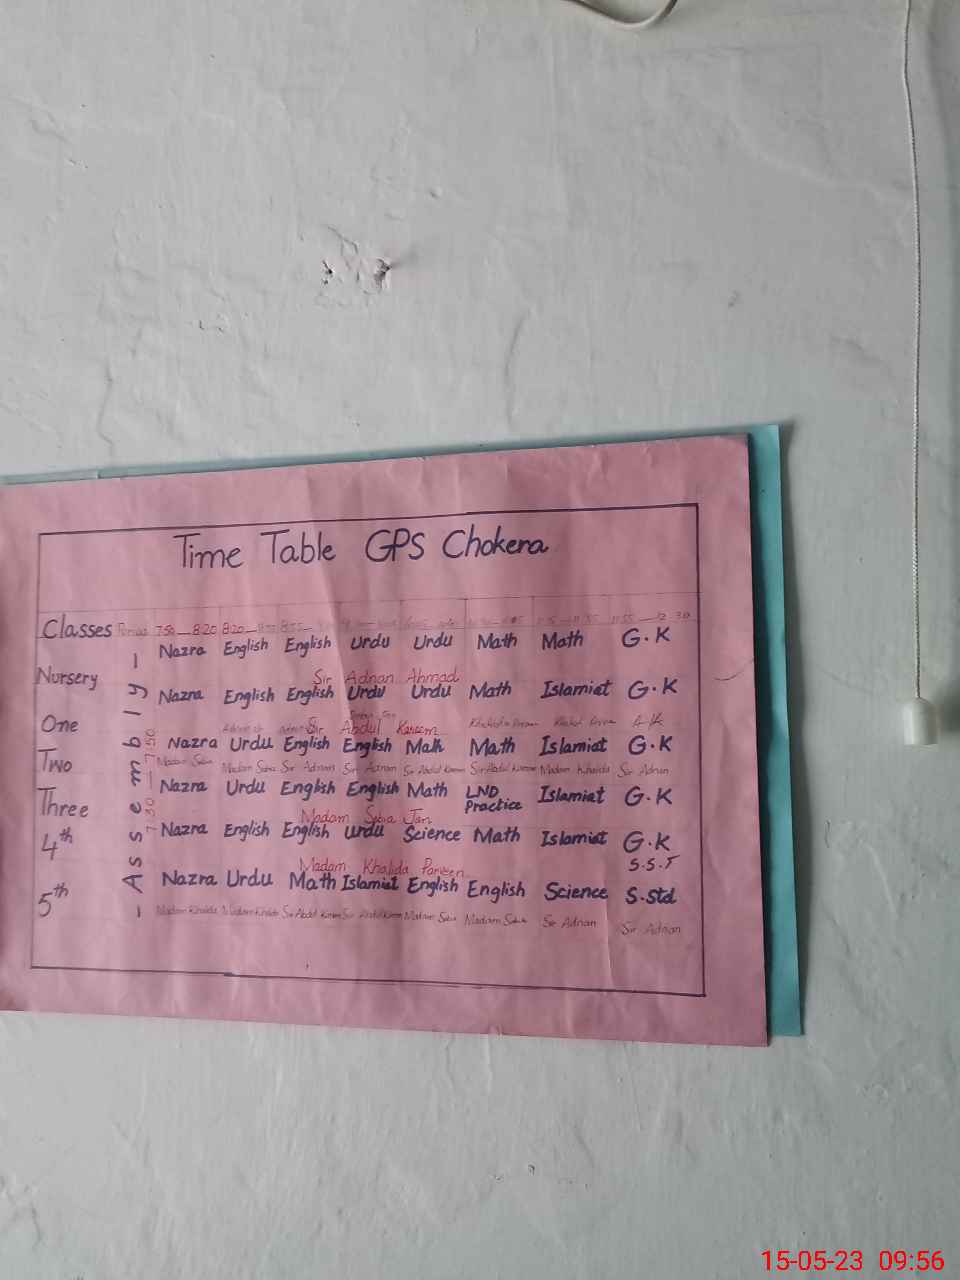 Time Table GPS Chokera
Classes Period 7:50 — 8:20 8:20 — 8:55 — 11:55 — 12 30
Nazra English English Urdu Urdu Math Math G.K
Nursery Sir Adnan Ahmad
Nazra English English Urdu Urdu Math Islamiat G.K
One Sir Abdul Kareem
Nazra Urdu English English Math Math Islamiat G.K
Two Madam Sabia Madam Sabia Sir Adnan Sir Adnan Sir Abdul Kareem Sir Abdul Kareem Madam Khalida Sir Adnan
Nazra Urdu English English Math LND Practice Islamiat G.K
Three Madam Sabia Jan
Nazra English English Urdu Science Math Islamiat G.K
4th Madam Khalida Parveen S.S.T
Nazra Urdu Math Islamiat English English Science S.Std
5th Madam Khalida Madam Khalida Sir Abdul Kareem Sir Abdul Kareem Madam Sabia Madam Sabia Sir Adnan Sir Adnan
— Assembly —
7:30 — 7:50
15-05-23 09:56